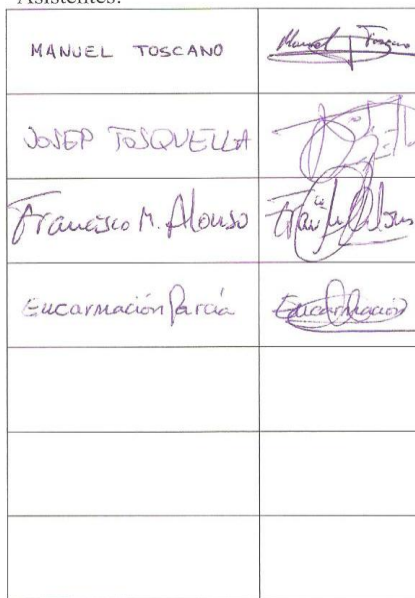 Asistentes:
MANUEL TOSCANO Manuel Toscano
JOSEP TOSQUELLA
Francisco M. Alonso
Encarnación García Encarnación